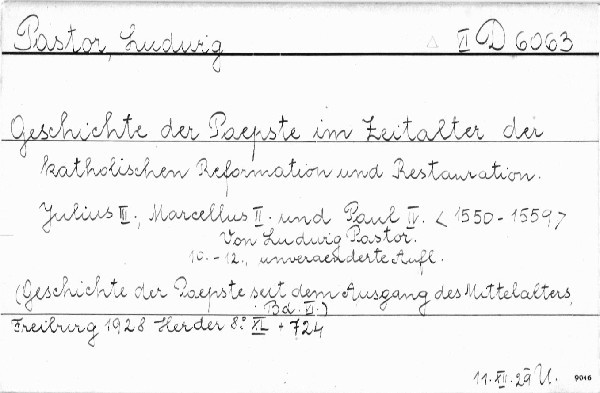 Pastor, Ludwig △ II D 6063
Geschichte der Paepste im Zeitalter der
katholischen Reformation und Restauration.
Julius III., Marcellus II. und Paul IV. <1550-1559>
Von Ludwig Pastor.
10.-12., unveraenderte Aufl.
(Geschichte der Paepste seit dem Ausgang des Mittelalters,
Bd. VI.)
Freiburg 1928 Herder 8° XL + 724
11. XII. 29 U. 9016